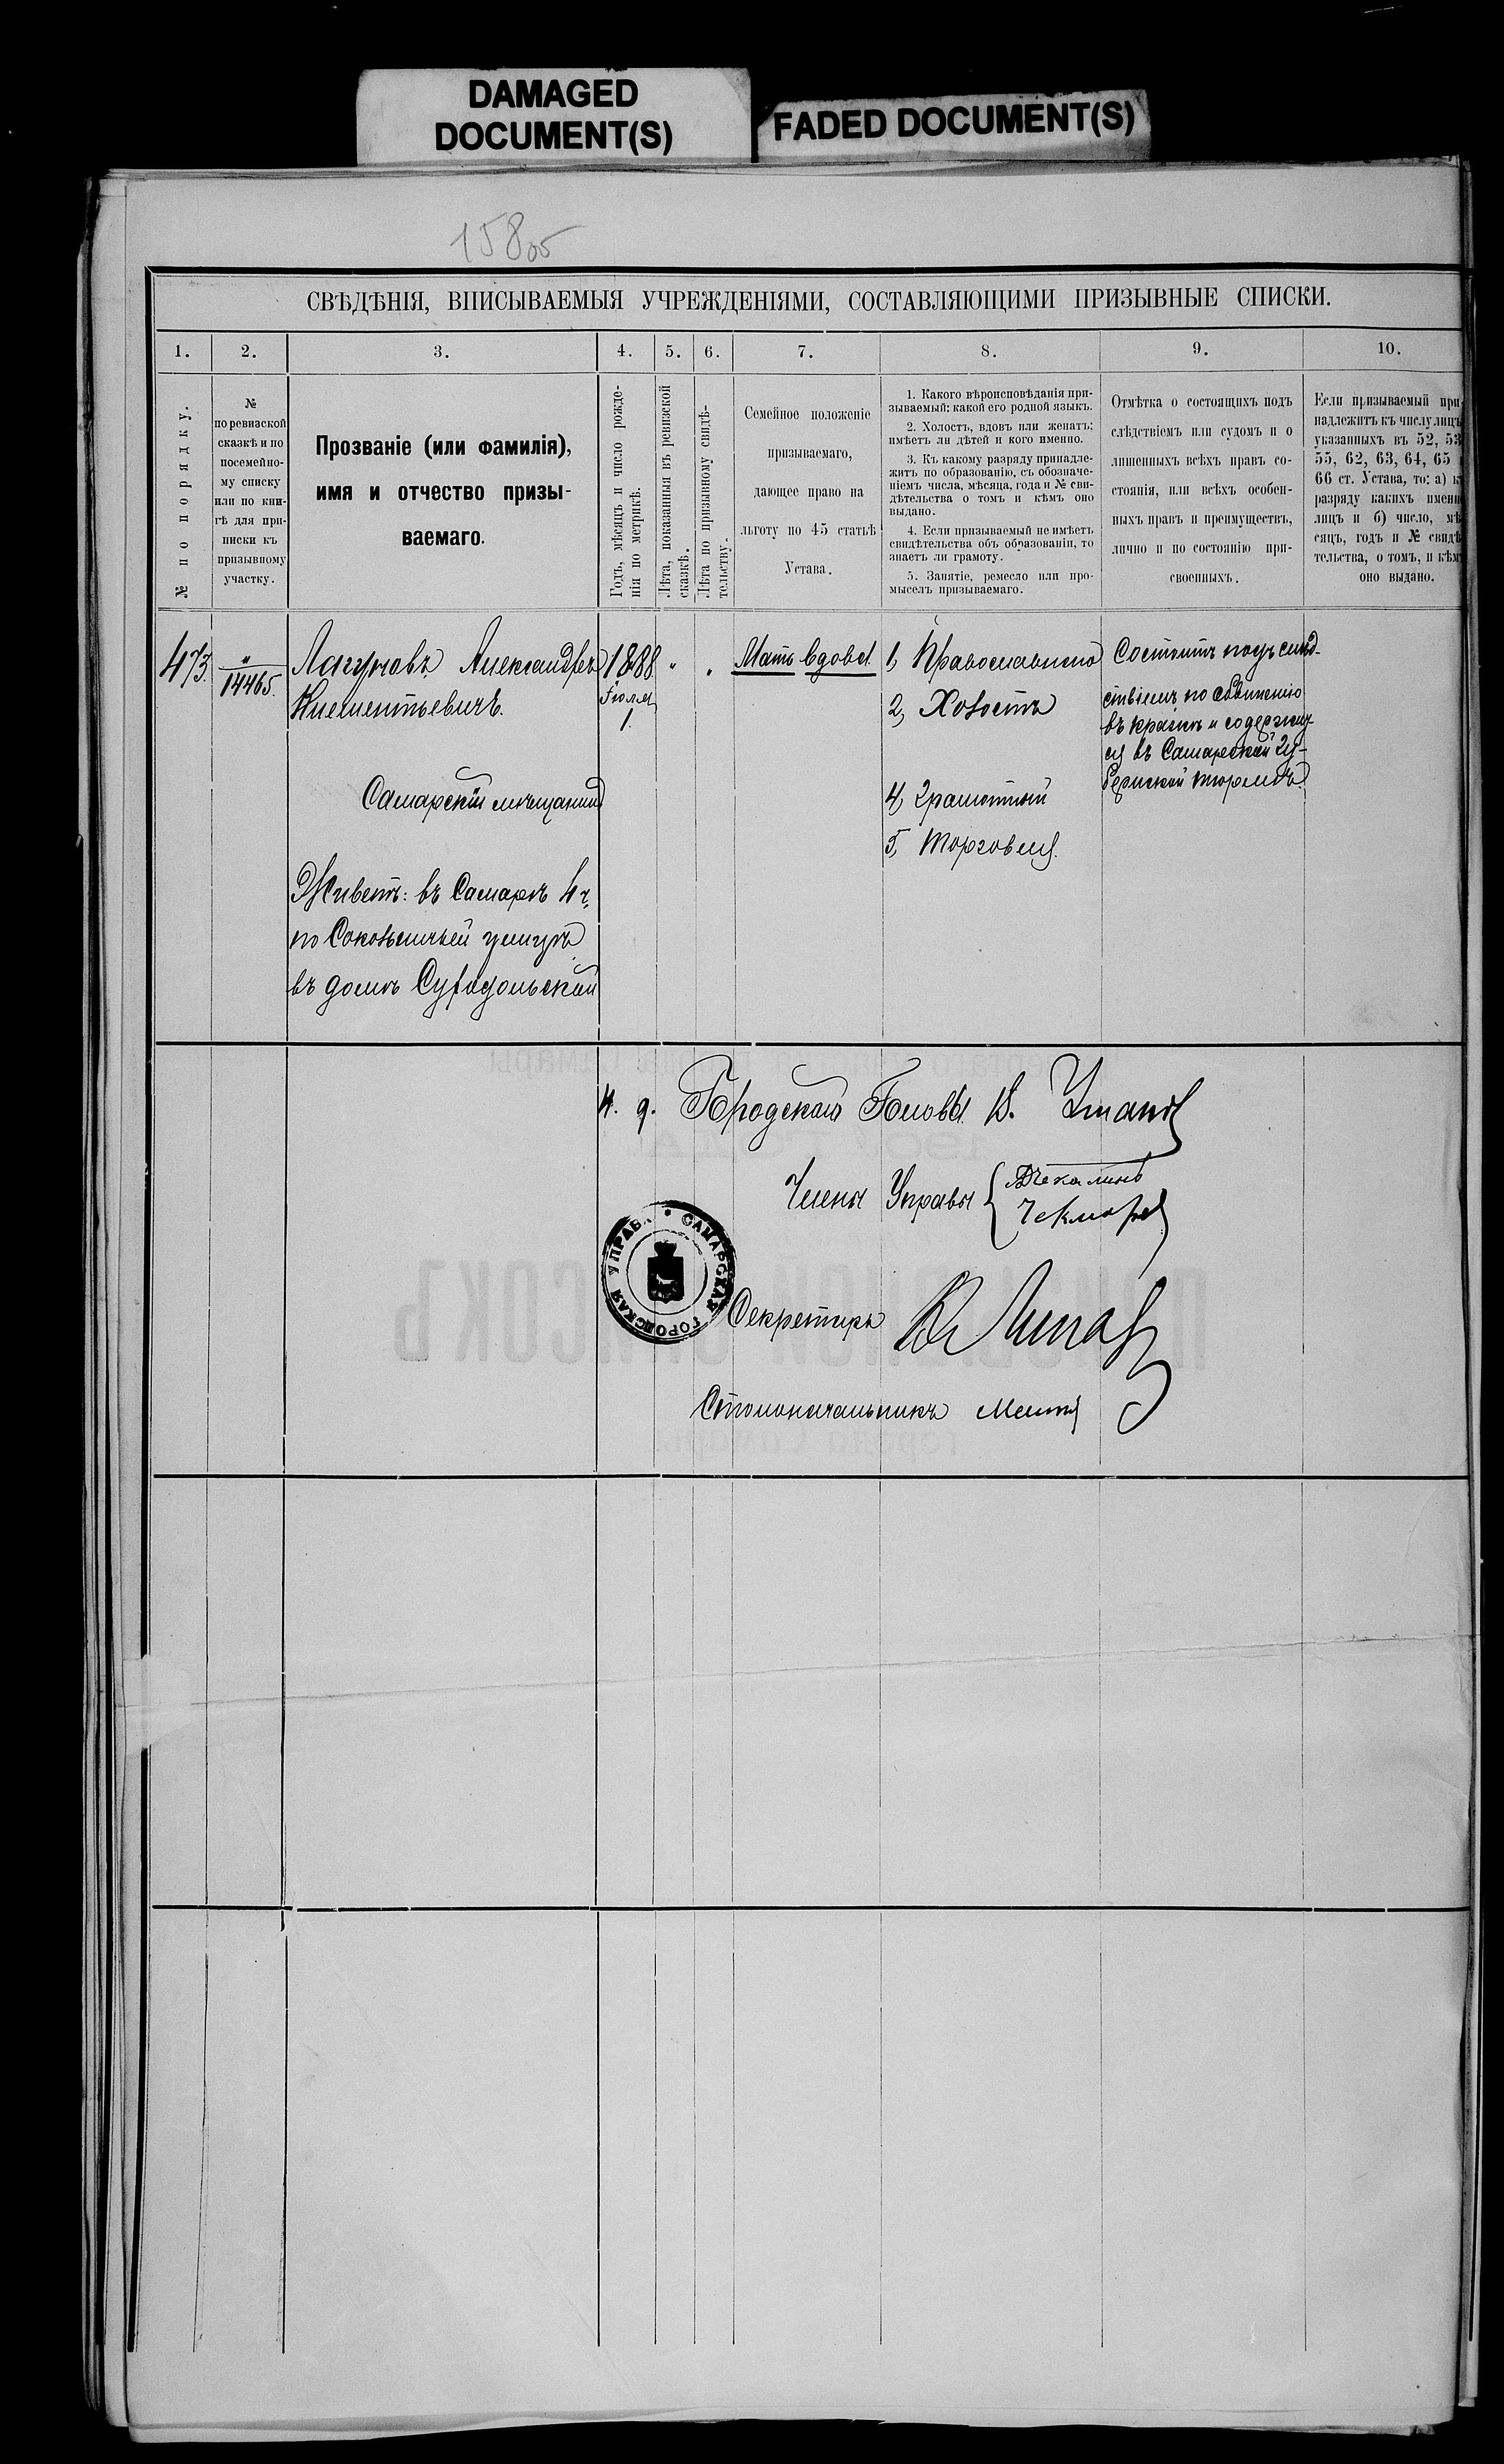 DAMAGED
DOCUMENT(S)
FADED DOCUMENT(S)
СВѢДѢНІЯ, ВПИСЫВАЕМЫЯ УЧРЕЖДЕНІЯМИ, СОСТАВЛЯЮЩИМИ ПРИЗЫВНЫЕ СПИСКИ.
1. 2. 3. 4. 5. 6. 7. 8. 9. 10.
№ по порядку.
№
по ревизской
сказкѣ и по
посемейно-
му списку
или по кни-
гѣ для при-
писки къ
призывному
участку.
Прозваніе (или фамилія),
имя и отчество призы-
ваемаго.
Годъ, мѣсяцъ и число рожде-
нія по метрикѣ.
Лѣта, показанныя въ ревизской
сказкѣ.
Лѣта по призывному свидѣ-
тельству.
Семейное положеніе
призываемаго,
дающее право на
льготу по 45 статьѣ
Устава.
1. Какого вѣроисповѣданія при-
зываемый; какой его родной языкъ.
2. Холостъ, вдовъ или женатъ;
имѣетъ ли дѣтей и кого именно.
3. Къ какому разряду принадле-
житъ по образованію, съ обозначе-
ніемъ числа, мѣсяца, года и № сви-
дѣтельства о томъ и кѣмъ оно
выдано.
4. Если призываемый не имѣетъ
свидѣтельства объ образованіи, то
знаетъ ли грамоту.
5. Занятіе, ремесло или про-
мыселъ призываемаго.
Отмѣтка о состоящихъ подъ
слѣдствіемъ или судомъ и о
лишенныхъ всѣхъ правъ со-
стоянія, или всѣхъ особен-
ныхъ правъ и преимуществъ,
лично и по состоянію при-
своенныхъ.
Если призываемый при
надлежитъ къ числу лицъ
указанныхъ въ 52, 53
55, 62, 63, 64, 65
66 ст. Устава, то: а) к
разряду какихъ имени
лицъ и б) число, мѣ
сяцъ, годъ и № свидѣ
тельства, о томъ, и кѣм
оно выдано.
473.
"
14465.
Александръ
Климентьевичъ.
Самарскій мѣщанинъ
Живетъ: въ Самарѣ 4 ч.
по Сокольничьей улицѣ
въ домѣ Суходольской
1888
Іюля
1.
"
"
Мать вдова
1, Православнаго
2, Холостъ
4, Грамотный
5, Торговля.
Состоитъ подъ слѣд-
ствіемъ по обвиненію
въ кражѣ и содержит-
ся въ Самарской гу-
бернской тюрьмѣ.
И. д. Городского Головы
Члены Управы
Чекалинъ
САМАРСКАЯ ГОРОДСКАЯ УПРАВА
Секретарь
Столоначальникъ